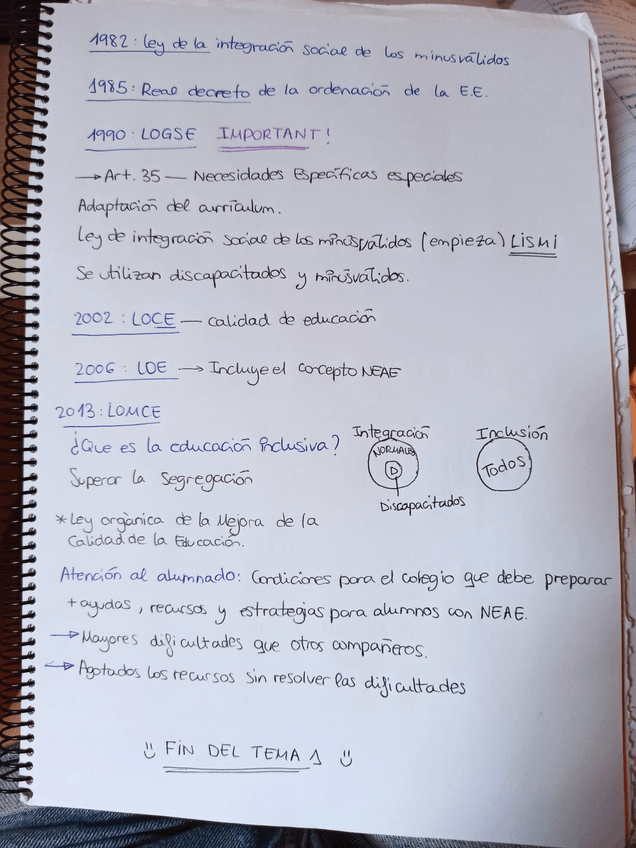 1982: ley de la integración social de los minusválidos
1985: Real decreto de la ordenación de la E.E.
1990: LOGSE IMPORTANT!
→ Art. 35 — Necesidades Específicas especiales
Adaptación del currículum.
Ley de integración social de los minusválidos (empieza) LISMI
Se utilizan discapacitados y minusválidos.
2002: LOCE — calidad de educación
2006: LOE → Incluye el concepto NEAE
2013: LOMCE
¿Que es la educación inclusiva?
Superar la Segregación
Integración
NORMALES
D
Discapacitados
Inclusión
Todos
*Ley orgànica de la Mejora de la
Calidad de la Educación.
Atención al alumnado: Condiciones para el colegio que debe preparar
+ ayudas, recursos y estrategias para alumnos con NEAE.
→ Mayores dificultades que otros compañeros.
→ Agotados los recursos sin resolver las dificultades
FIN DEL TEMA 1